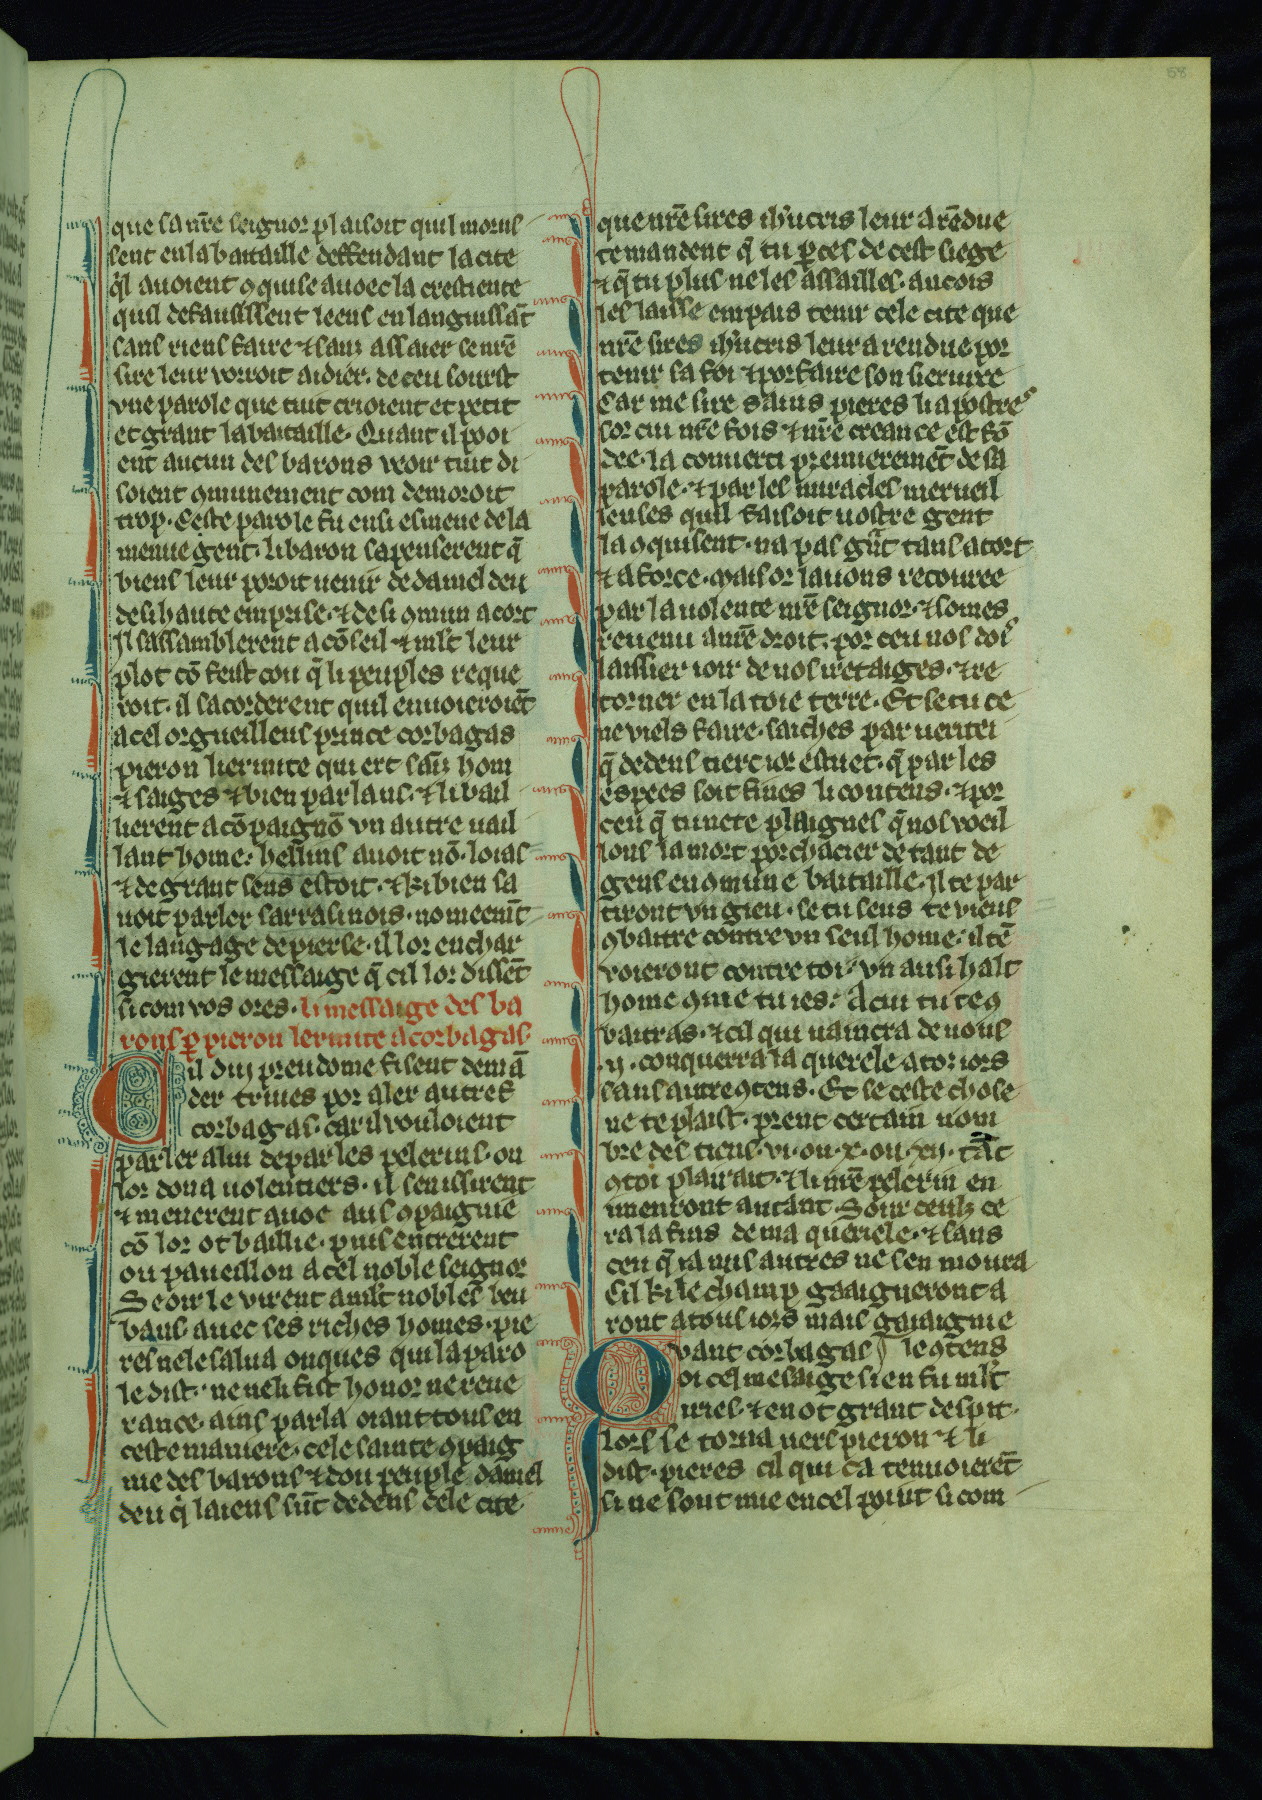 58
que sa nr̃e seignor plaisoit quil morus
sent en la bataille deffendant la cite
q̃l auoient ꝯquise auoec la crestiente
quil defausissent leens en languissãt
sans riens faire ⁊ sanz assaier se nr̃e
sire leur vorroit aidier. de ceu sourst
vne parole que tuit crioient et petit
et grant la bataille. Quant il pooi
ent aucun des barons veoir tuit di
soient ꝯmunement com demoroit
trop. Ceste parole fu ensi esmeue de la
menue gent. li baron sapenserent q̃
biens leur poroit uenir de damel deu
de si haute emprise. ⁊ de si ꝯmun acort
Jl sassamblerent a cõseil ⁊ ml̃t leur
plot cõ feist cou q̃ li peuples reque
roit. il sacorderent quil enuoieroiẽt
a cel orgueilleus prince corbagas
pieron liermite qui ert sainz hom
⁊ saiges ⁊ bien parlans. ⁊ li bail
lierent a cõpaignõ vn autre uail
lant home. hellius auoit nõ. loial
⁊ de grant sens estoit. ⁊ ki bien sa
uoit parler sarrasinois. nomeemt̃
le langage de pierse. il lor enchar
gierent le messaige q̃ cil lor dissẽt
si com vos ores. li messaige des ba
rons ꝑ pieron lermite a corbagas
Cil dui preudome fisent demã
der triues por aler au tref
corbagas. car il vouloient
parler a lui de par les pelerins. on
lor dona uolentiers. il sen issirent
⁊ menerent auoc aus ꝯpaignie
cõ lor ot baillie. puis entrerent
ou paueillon a cel noble seignor
Seoir le virent a ml̃t nobles beu
bans auec ses riches homes. pie
res ne le salua onques qui la paro
le dist. ne ne li fist honor ne reue
rance. ains parla oiant tous en
ceste maniere. cele sainte ꝯpaig
nie des barons ⁊ dou peuple damel
deu q̃ laiens sũt dedens cele cite
que nr̃e sires ih'ucris leur a rẽdue
te mandent q̃ tu ꝑtes de cest siege
⁊ q̃ tu plus ne les assailles. ancois
les laisse em pais tenir cele cite que
nr̃e sires ih'ucris leur a rendue por
tenir sa foi ⁊ por faire son seruixe
Car me sire sains pieres li apostre
sor cui nr̃e fois ⁊ nr̃e creance est fõ
dee. la conuerti premieremẽt de sa
parole. ⁊ par les miracles merueil
leuses quil faisoit uostre gent
la ꝯquisent. na pas gr̃t tans a tort
⁊ a force. mais or lauons recouree
par la uolente nr̃e seignor. ⁊ somes
reuenu a nr̃e droit. por ceu uos dois
laissier ioir de nos iretaiges. ⁊ re
torner en la toie terre. Et se tu ce
ne viels faire. saiches par ueritei
q̃ dedens tierc ior estuet. q̃ par les
espees soit fines li contens. ⁊ por
ceu q̃ tu ne te plaignes q̃ nos voeil
lons la mort porchacier de tant de
gens en ꝯmune bataille. Jl te par
tiront vn gieu. se tu seus te viens
ꝯbattre contre vn seul home. il tẽ
voieront contre toi. vn ausi halt
home ꝯme tu ies. A cui tu te ꝯ
batras. ⁊ cil qui uaincra de uous
.ij. conquerra la querele a toriors
sans autre ꝯtens. Et se ceste chose
ne te plaist. prent certain nom
bre des tiens. vi. ou .x. ou .xij. tãt
ꝯ toi plaira. ⁊ li nr̃e pelerin en
menront autant. Sour ceulz ce
ra la fins de ma querele. ⁊ sans
ceu q̃ ia nus autres ne sen moura
Cil ki le champ gaaigneront a
ront a tous iors mais gaaignie
Quant corbagas le ꝯtens
oi cel messaige si en fu ml̃t
iries. ⁊ en ot grant despit.
lors se torna uers pieron ⁊ li
dist. pieres cil qui ca tenuoierẽt
si ne sont mie en cel point si com